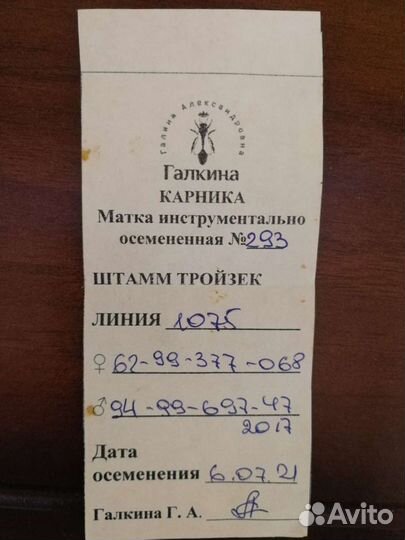 Галина Александровна
Галкина
КАРНИКА
Матка инструментально
осемененная №293
ШТАММ ТРОЙЗЕК
ЛИНИЯ 1075
♀ 62-99-377-068
♂ 94-99-697-47
2017
Дата
осеменения 6.07.21
Галкина Г. А.
Avito